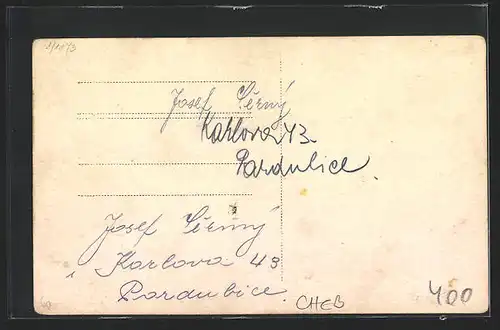 Josef Černý
Karlova 43.
Pardubice.
Josef Černý
Karlova 43
Pardubice.
CHEB
400